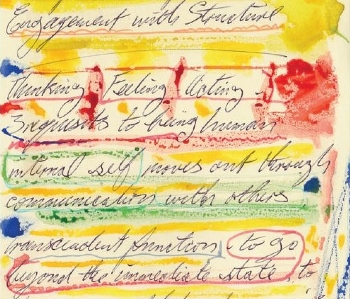 Engagement with Structure
thinking Feeling Acting
3 requisits to being human
internal self moves out through
communication with others
transcendent function, to go
beyond the immediate state, to